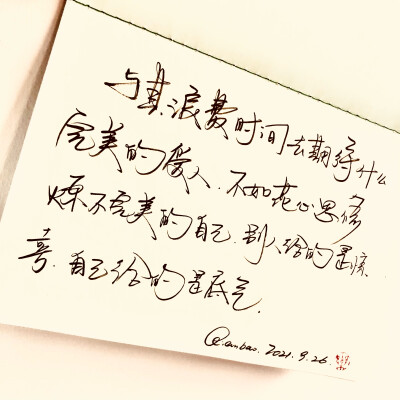 与其浪费时间去期待什么
完美的爱人.不如花心思修
炼不完美的自己.别人给的是惊
喜.自己给的是底气.
Q.anbao. 2021.9.26.